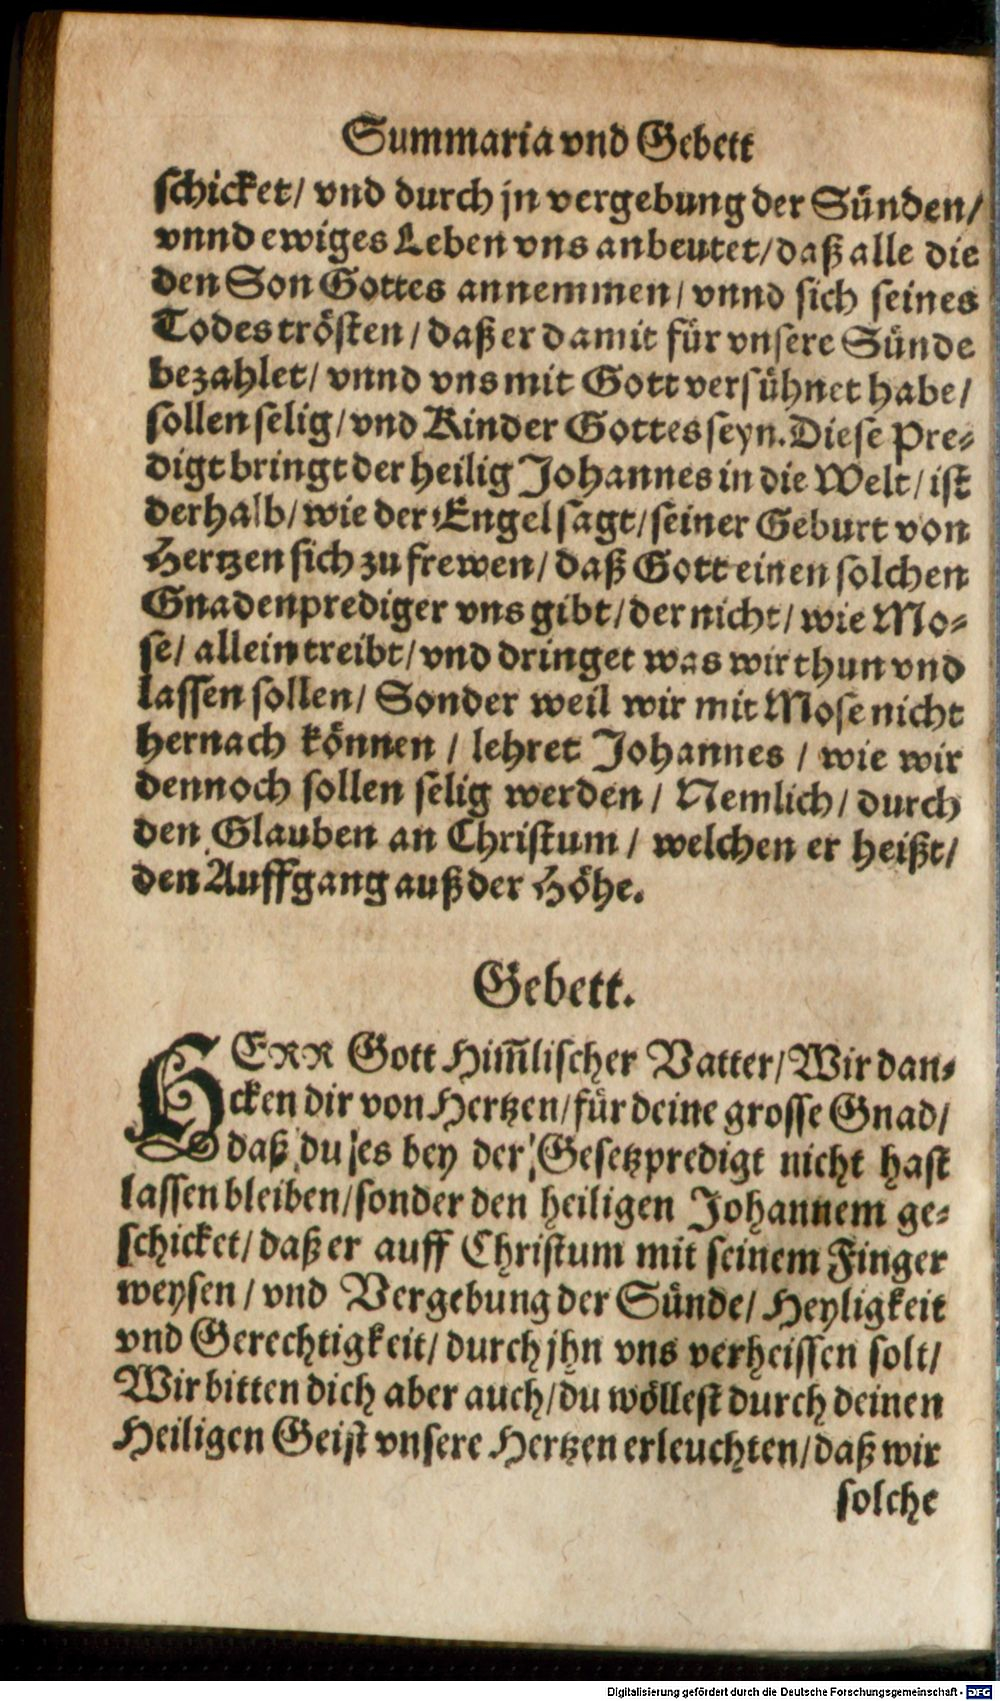 Summaria vnd Gebett
schicket/ vnd durch jn vergebung der Sünden/
vnnd ewiges Leben vns anbeutet/ daß alle die
den Son Gottes annemmen/ vnnd sich seines
Todes trösten/ daß er damit für vnsere Sünde
bezahlet/ vnnd vns mit Gott versühnet habe/
sollen selig/ vnd Kinder Gottes seyn. Diese Pre-
digt bringt der heilig Johannes in die Welt/ ist
derhalb/ wie der Engel sagt/ seiner Geburt von
Hertzen sich zu frewen/ daß Gott einen solchen
Gnadenprediger vns gibt/ der nicht/ wie Mo-
se/ allein treibt/ vnd dringet was wir thun vnd
lassen sollen/ Sonder weil wir mit Mose nicht
hernach können / lehret Johannes / wie wir
dennoch sollen selig werden / Nemlich/ durch
den Glauben an Christum / welchen er heißt/
den Auffgang auß der Höhe.
Gebett.
HERR Gott Him̃lischer Vatter/ Wir dan-
cken dir von Hertzen/ für deine grosse Gnad/
daß du es bey der Gesetzpredigt nicht hast
lassen bleiben/ sonder den heiligen Johannem ge-
schicket/ daß er auff Christum mit seinem Finger
weysen / vnd Vergebung der Sünde/ Heyligkeit
vnd Gerechtigkeit/ durch jhn vns verheissen solt/
Wir bitten dich aber auch/ du wöllest durch deinen
Heiligen Geist vnsere Hertzen erleuchten/ daß wir
solche
Digitalisierung gefördert durch die Deutsche Forschungsgemeinschaft - DFG